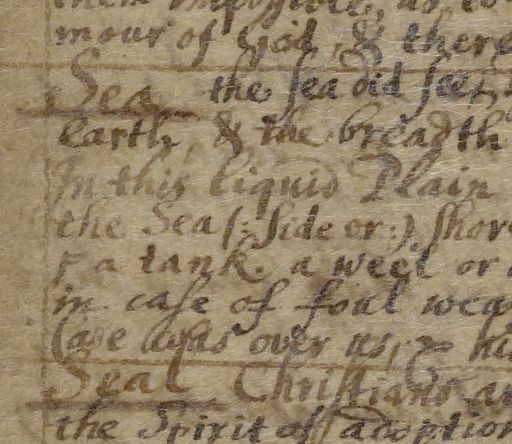 mour of God, & there
Sea the sea did seek
earth, & the breadth
In this liquid Plain
the Sea (: side or :) shor
a tank. a weel or
in case of foul wea
case was over us,
Seal Christians ar
the Spirit of adoption